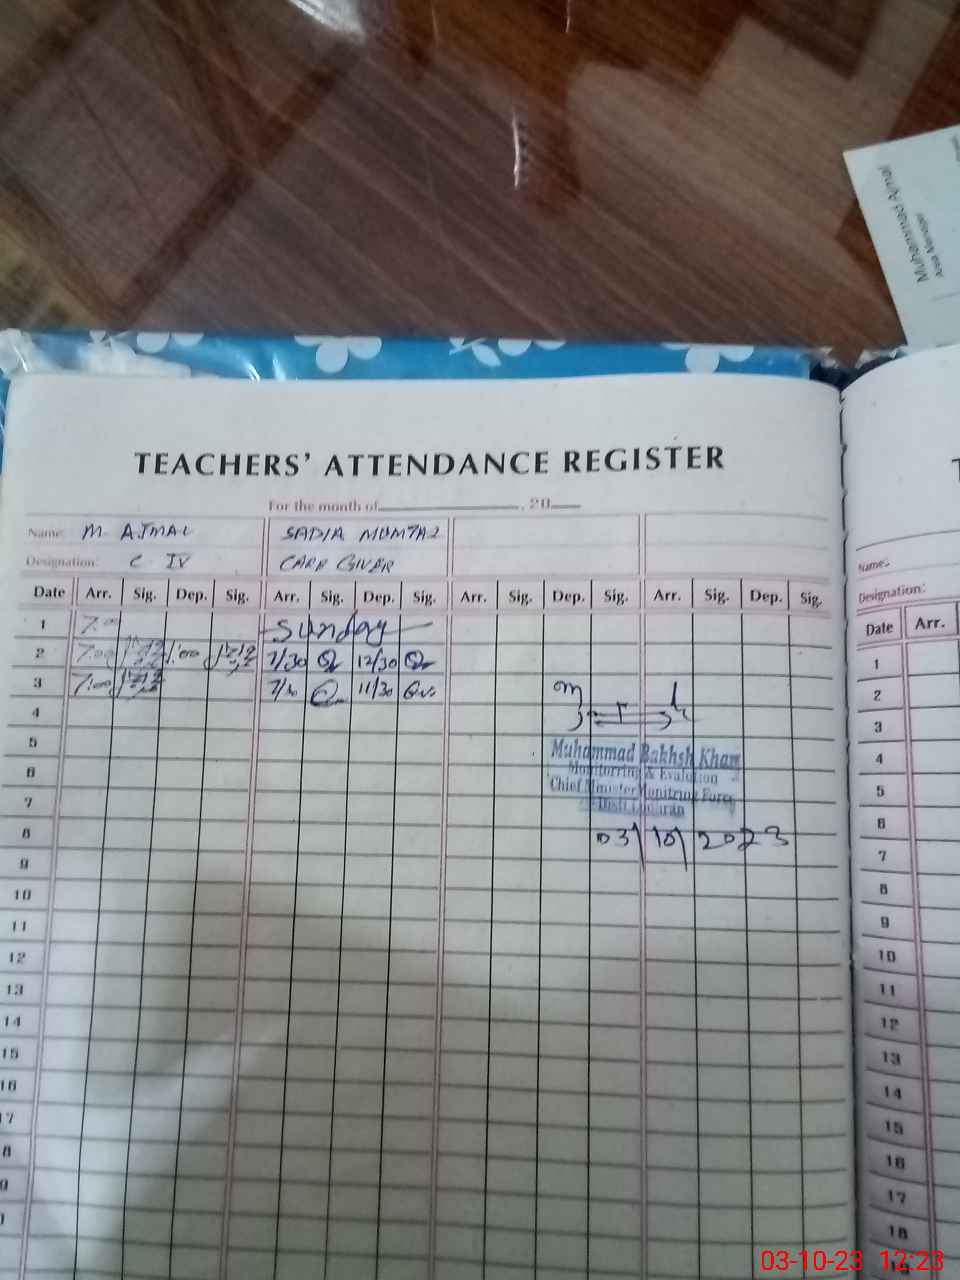 Muhammad Ajmal
Area Manager
TEACHERS' ATTENDANCE REGISTER
For the month of , 20
Name: M. AJMAL SADIA MUMTAZ
Designation: C. IV CARE GIVER
Date Arr. Sig. Dep. Sig. Arr. Sig. Dep. Sig. Arr. Sig. Dep. Sig. Arr. Sig. Dep. Sig.
1 7:00 Sunday
2 7:00 1:00 7/30 12/30
3 7:00 7/30 11/30
4
5
6
7
8
9
10
11
12
13
14
15
16
17
Muhammad Bakhsh Khan
Monitorring & Evalution
Chief Minister Monitring Force
Distt Lodhran
03/10/2023
Name:
Designation:
Date Arr.
1
2
3
4
5
6
7
8
9
10
11
12
13
14
15
16
17
18
03-10-23 12:23